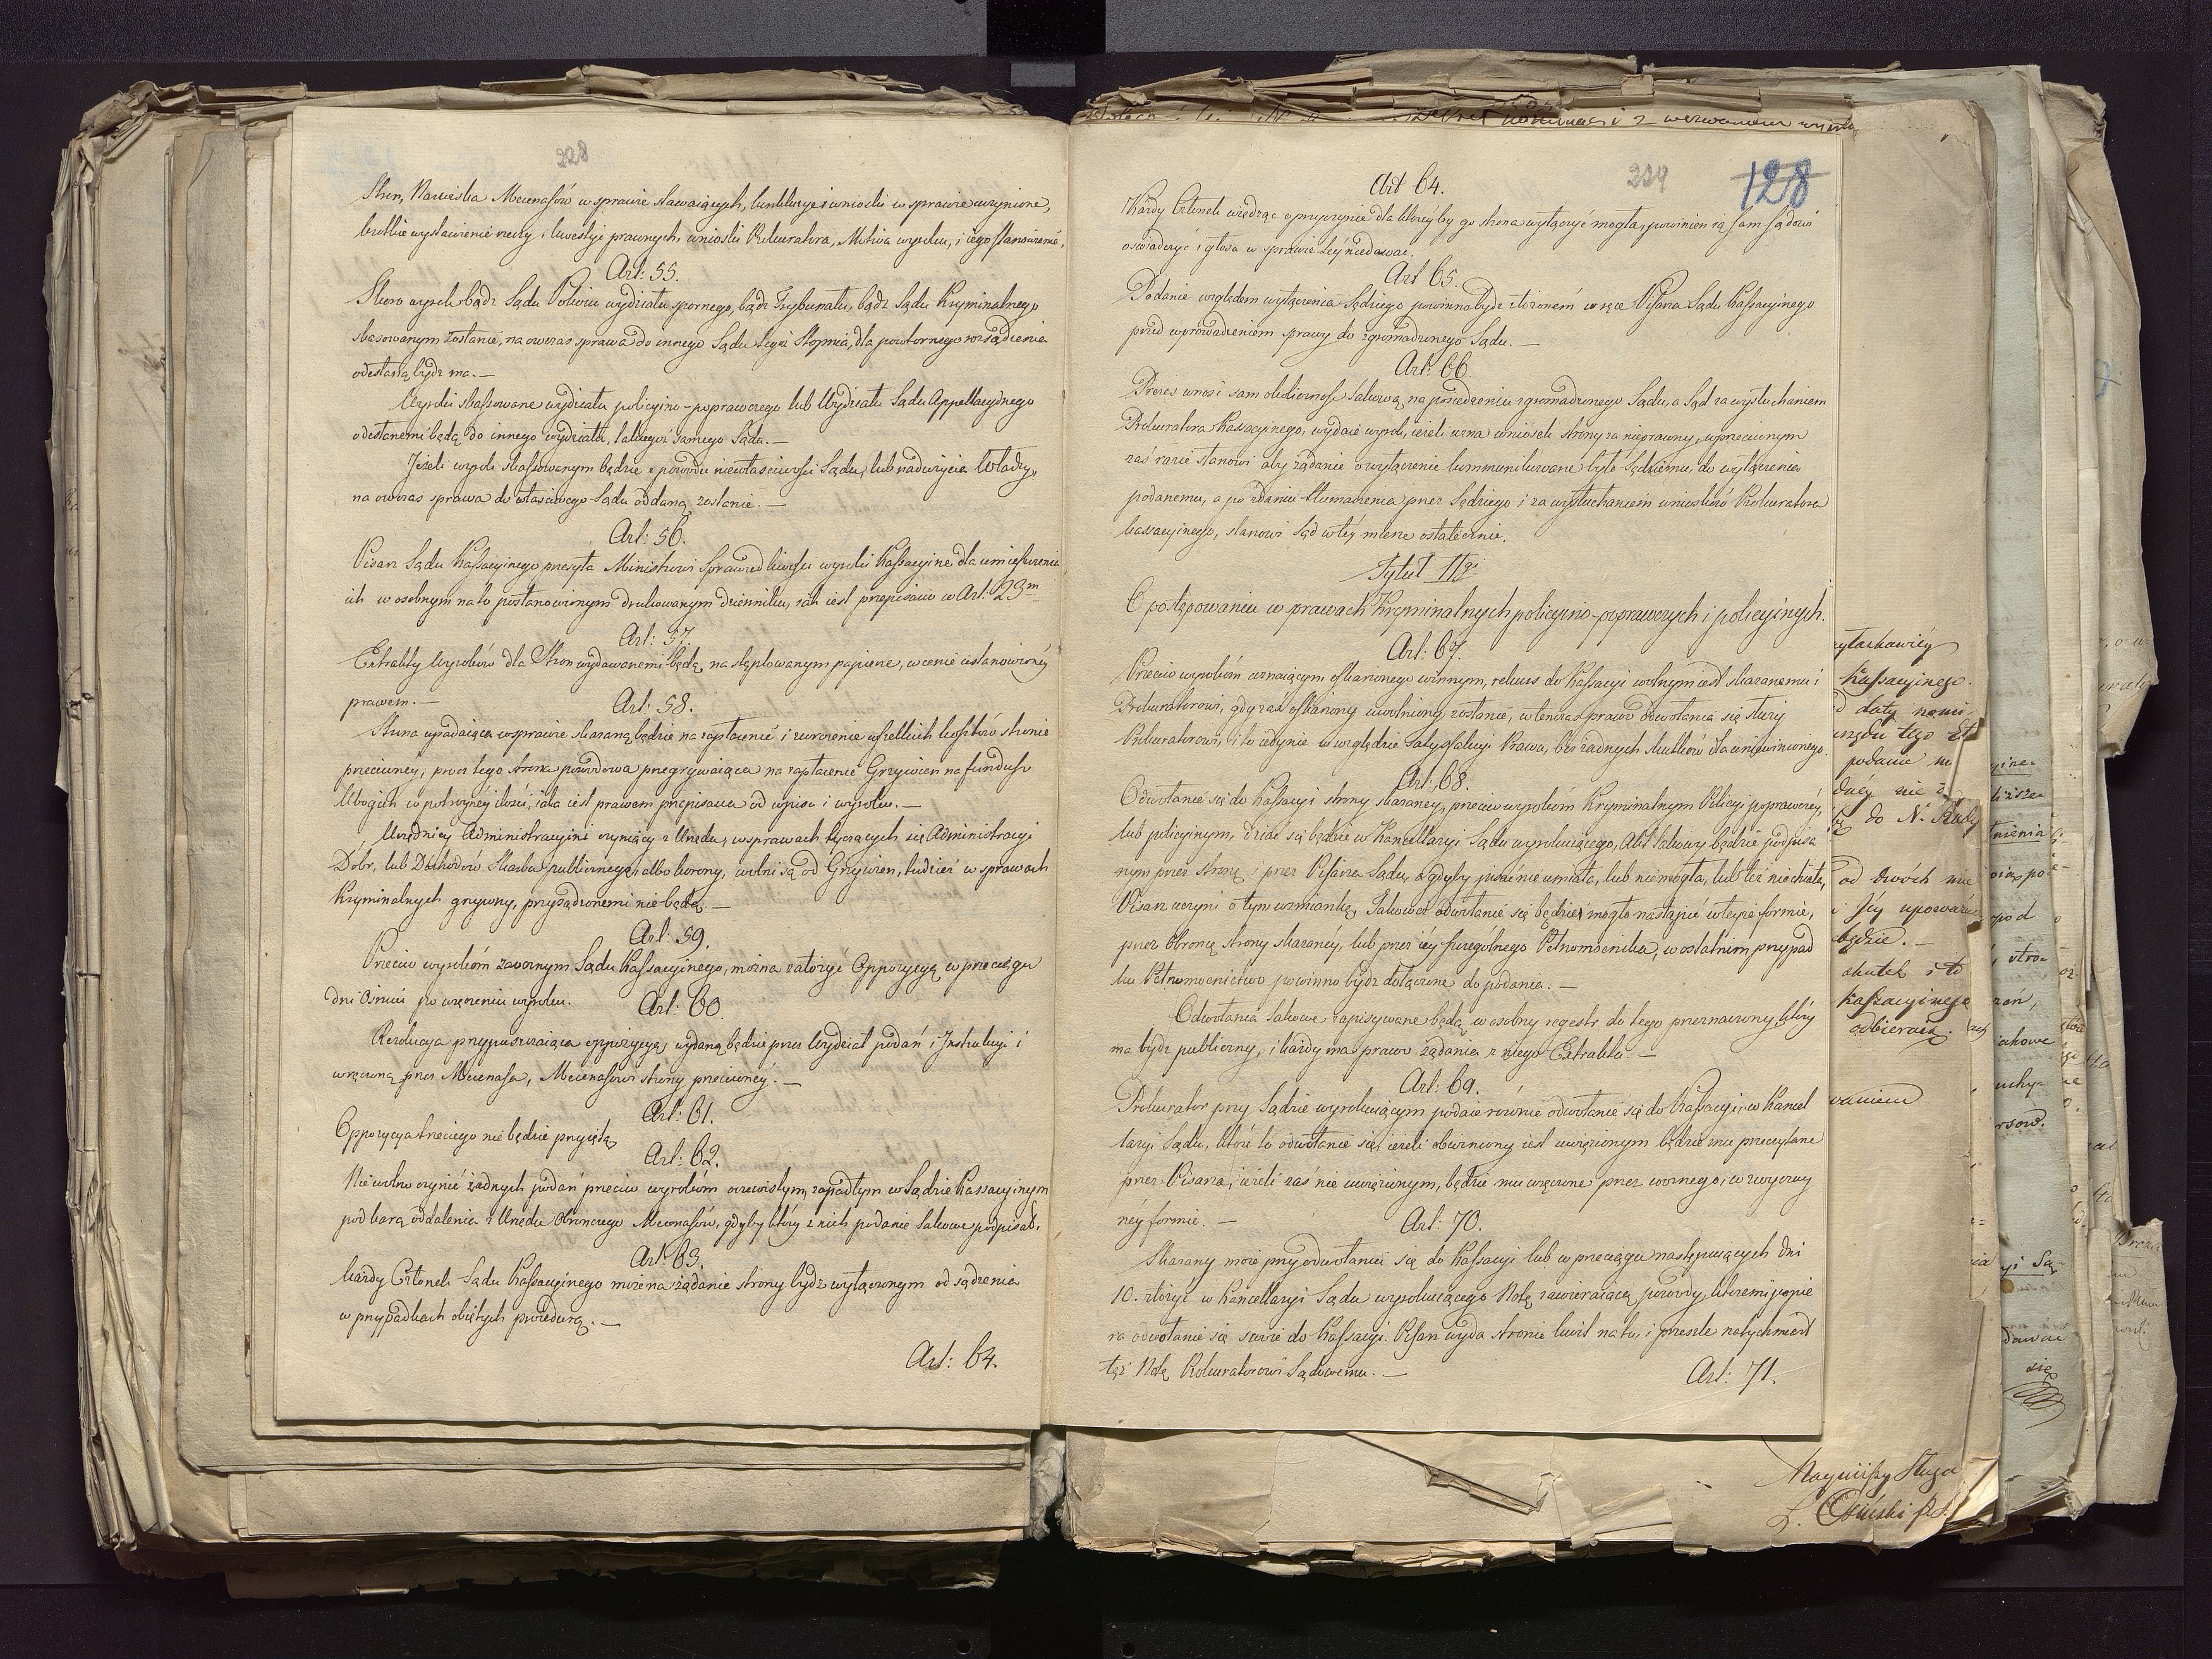 228
Stron, Nazwiska Mecenasów w sprawie stawaiących, konkluzye i wnioski w sprawie uczynione,
krótkie wystawienie rzeczy i kwestyi prawnych, wnioski Prokuratora, Motiva wyroku, i iego stanowienie.
Art: 55.
Skoro wyrok bądź Sądu Pokoiu wydziału spornego, bądź Trybunału, bądź Sądu Kryminalnego
skasowanym zostanie, na owczas sprawa do innego Sądu tegoż Stopnia, dla powtornego rozsądzenia
odesłaną bydz ma. —
Wyroki skassowane wydziału policyino-poprawczego lub Wydziału Sądu Appellacyinego
odesłanemi będą do innego wydziału, takiegoż samego Sądu. —
Jeżeli wyrok skassowanym będzie z powodu niewłaściwości Sądu, lub nadużycia Władzy,
na owczas sprawa do właściwego Sądu oddaną zostanie. —
Art: 56.
Pisarz Sądu Kassacyinego przesyła Ministrowi Sprawiedliwości wyroki Kassacyine dla umieszczenia
ich w osobnym na to postanowionym drukowanym dzienniku, iak iest przepisano w Art: 23m
Art: 57.
Extrakty Wyroków dla Stron wydawanemi będą na stęplowanym papierze, w cenie ustanowioney
prawem. —
Art: 58.
Strona upadaiąca w sprawie skazaną będzie na zapłacenie i zwrocenie wszelkich kosztów stronie
przeciwney, procz tego strona powodowa przegrywaiąca na zapłacenie Grzywien na fundusz
Ubogich w potroyney ilości, iaka iest prawem przepisana od wpisu i wyroku. —
Urzędnicy Administracyini czyniący z Urzędu, w sprawach tyczących się Administracyi
Dóbr, lub Dochodów Skarbu publicznego, albo korony, wolni są od Grzywien, tudzież w sprawach
Kryminalnych grzywny, przysądzonemi nie będą. —
Art: 59.
Przeciw wyrokóm zaocznym Sądu Kassacyinego, można założyć Oppozycyą w przeciągu
dni Ośmiu po wręczeniu wyroku.
Art: 60.
Rezolucya przypuszczaiąca oppozycyą, wydaną będzie przez Wydział podań i Instrukcyi i
wręczoną przez Mecenasa, Mecenasowi strony przeciwney. —
Art: 61.
Oppozycya trzeciego nie będzie przyiętą
Art: 62.
Nie wolno czynić żadnych podań przeciw wyrokóm oczewistym, zapadłym w Sądzie Kassacyinym
pod karą oddalenia z Urzędu Obronczego Mecenasów, gdyby który z nich podanie takowe podpisał.
Art: 63.
Każdy Członek Sądu Kassacyinego może na żądanie strony bydz wyłączonym od sądzenia
w przypadkach obiętych procedurą. —
Art: 64.
229
128
Art 64.
Każdy Członek wiedząc o przyczynie dla którey by go strona wyłączyć mogła, powinien ią sam Sądowi
oświadczyć i głosu w sprawie tey niedawać.
Art 65.
Podanie względem wyłączenia Sędziego powinno bydz złożoném w ręce Pisarza Sądu Kassacyinego
przed wprowadzeniem sprawy do zgromadzonego Sądu. —
Art: 66.
Prezes wnosi sam okoliczność takową na posiedzeniu zgromadzonego Sądu, a Sąd za wysłuchaniem
Prokuratora Kassacyinego, wydaie wyrok, ieżeli uzna wniosek strony za nieprawny, w przeciwnym
zaś razie stanowi aby żądanie o wyłączenie kommunikowane było Sędziemu, do wyłączenia
podanemu, a po zdaniu tłumaczenia przez Sędziego i za wysłuchaniem wniosków Prokuratora
kassacyinego, stanowi Sąd w tey mierze ostatecznie.
Tytuł IIgi
O postępowaniu w sprawach Kryminalnych policyino-poprawczych i policyinych.
Art: 67.
Przeciw wyrokóm uznaiącym oskarżonego winnym, rekurs do Kassacyi wolnym iest skazanemu i
Prokuratorowi, gdy zaś oskarżony uwolniony zostanie, w tenczas prawo odwołania się służy
Prokuratorowi, i to iedynie w względzie satysfakcyi Prawa, bez żadnych skutków dla uniewinnionego.
Art: 68.
Odwołanie się do Kassacyi strony skazaney, przeciw wyrokóm Kryminalnym Policyi poprawczey,
lub policyinym, dziać się będzie w Kancellaryi Sądu wyrokuiącego, Akt takowy będzie podpisa
nym przez stronę i przez Pisarza Sądu, a gdyby pisać nie umiała, lub niemogła, lub też nie chciała,
Pisarz uczyni o tym wzmiankę, Takowe odwołanie się będzie mogło nastąpić w teyże formie,
przez obronę strony skazaney, lub przez iey szczególnego Pełnomocnika, w ostatnim przypad
ku Pełnomocnictwo powinno bydz dołączone do podania. —
Odwołania takowe zapisywane będą w osobny regestr do tego przeznaczony, który
ma bydz publiczny, i każdy ma prawo żądania z niego Extraktu. —
Art: 69.
Prokurator przy Sądzie wyrokuiącym podaie równie odwołanie się do Kassacyi, w Kancel
laryi Sądu, które to odwołanie się, ieżeli obwiniony iest uwięzionym będzie mu przeczytane
przez Pisarza, ieżeli zaś nie uwięzionym, będzie mu wręczone przez woznego, w zwyczay
ney formie. —
Art: 70.
Skazany może przy odwołaniu się do Kassacyi lub w przeciągu następuiących dni
10. złożyć w Kancellaryi Sądu wyrokuiącego Notę zawieraiącą powody, któremi popie
ra odwołanie się swoie do Kassacyi. Pisarz wyda stronie kwit na to, i prześle natychmiast
też Notę Prokuratorowi Sądowemu. —
Art: 71.
Kassacyinego.
daty nomi-
podanie
do N. Rady
od dwóch
będzie. —
Kassacyinego
odbieraią.
Nayniższy Sługa
L. Osiński